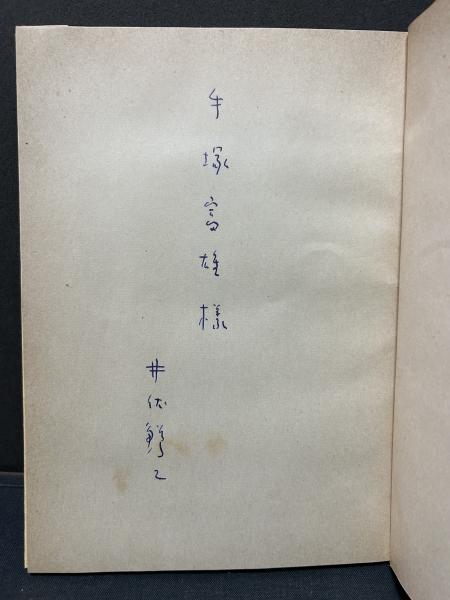 手塚富雄様
井伏鱒二